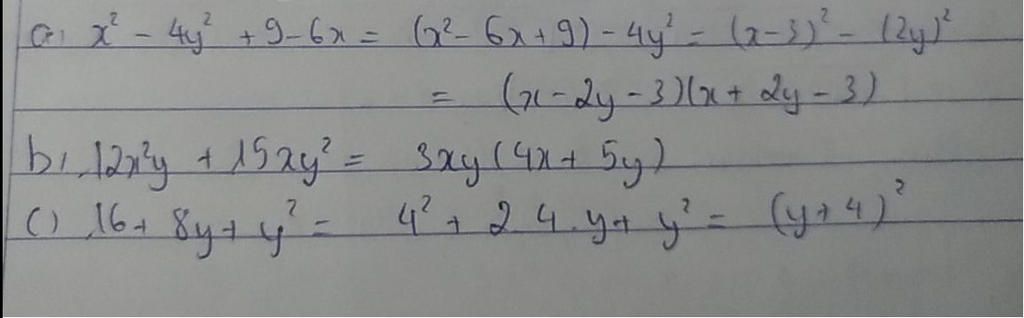 a, x² - 4y² + 9 - 6x = (x² - 6x + 9) - 4y² = (x - 3)² - (2y)²
= (x - 2y - 3)(x + 2y - 3)
b, 12x²y + 15xy² = 3xy(4x + 5y)
c) 16 + 8y + y² = 4² + 2 4.y + y² = (y + 4)²